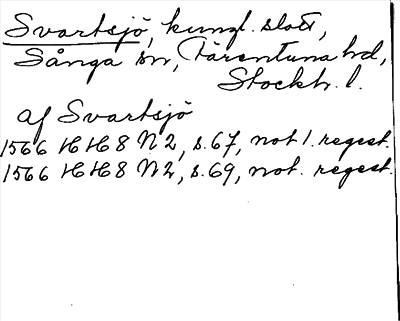 Svartsjö, kungl. slott,
Sånga sn, Färentuna hd,
Stockh. l.
af Svartsjö
1566 HH 8 N 2, s. 67, not 1. regest.
1566 HH 8 N 2, s. 69, not. regest.